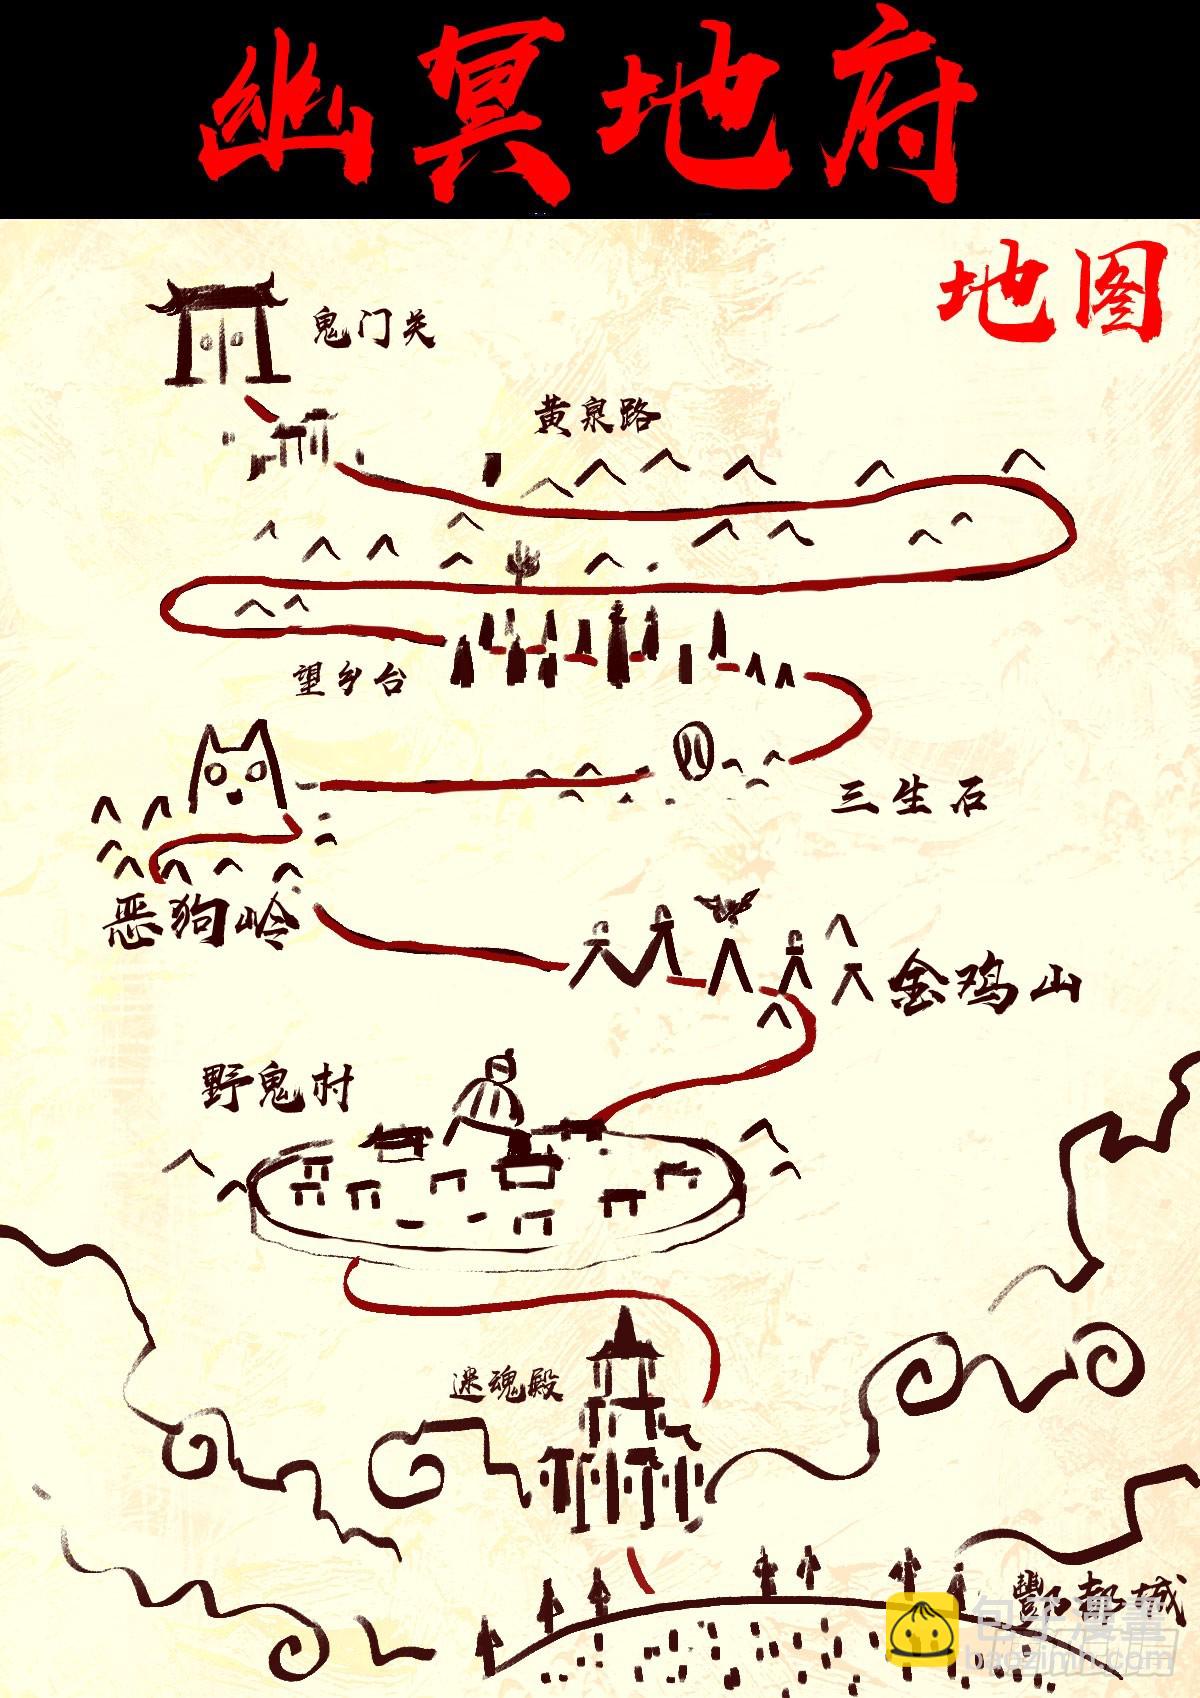 幽冥地府
地图
鬼门关
黄泉路
望乡台
三生石
恶狗岭
金鸡山
野鬼村
迷魂殿
酆都城
包子漫畫
baozimh.com